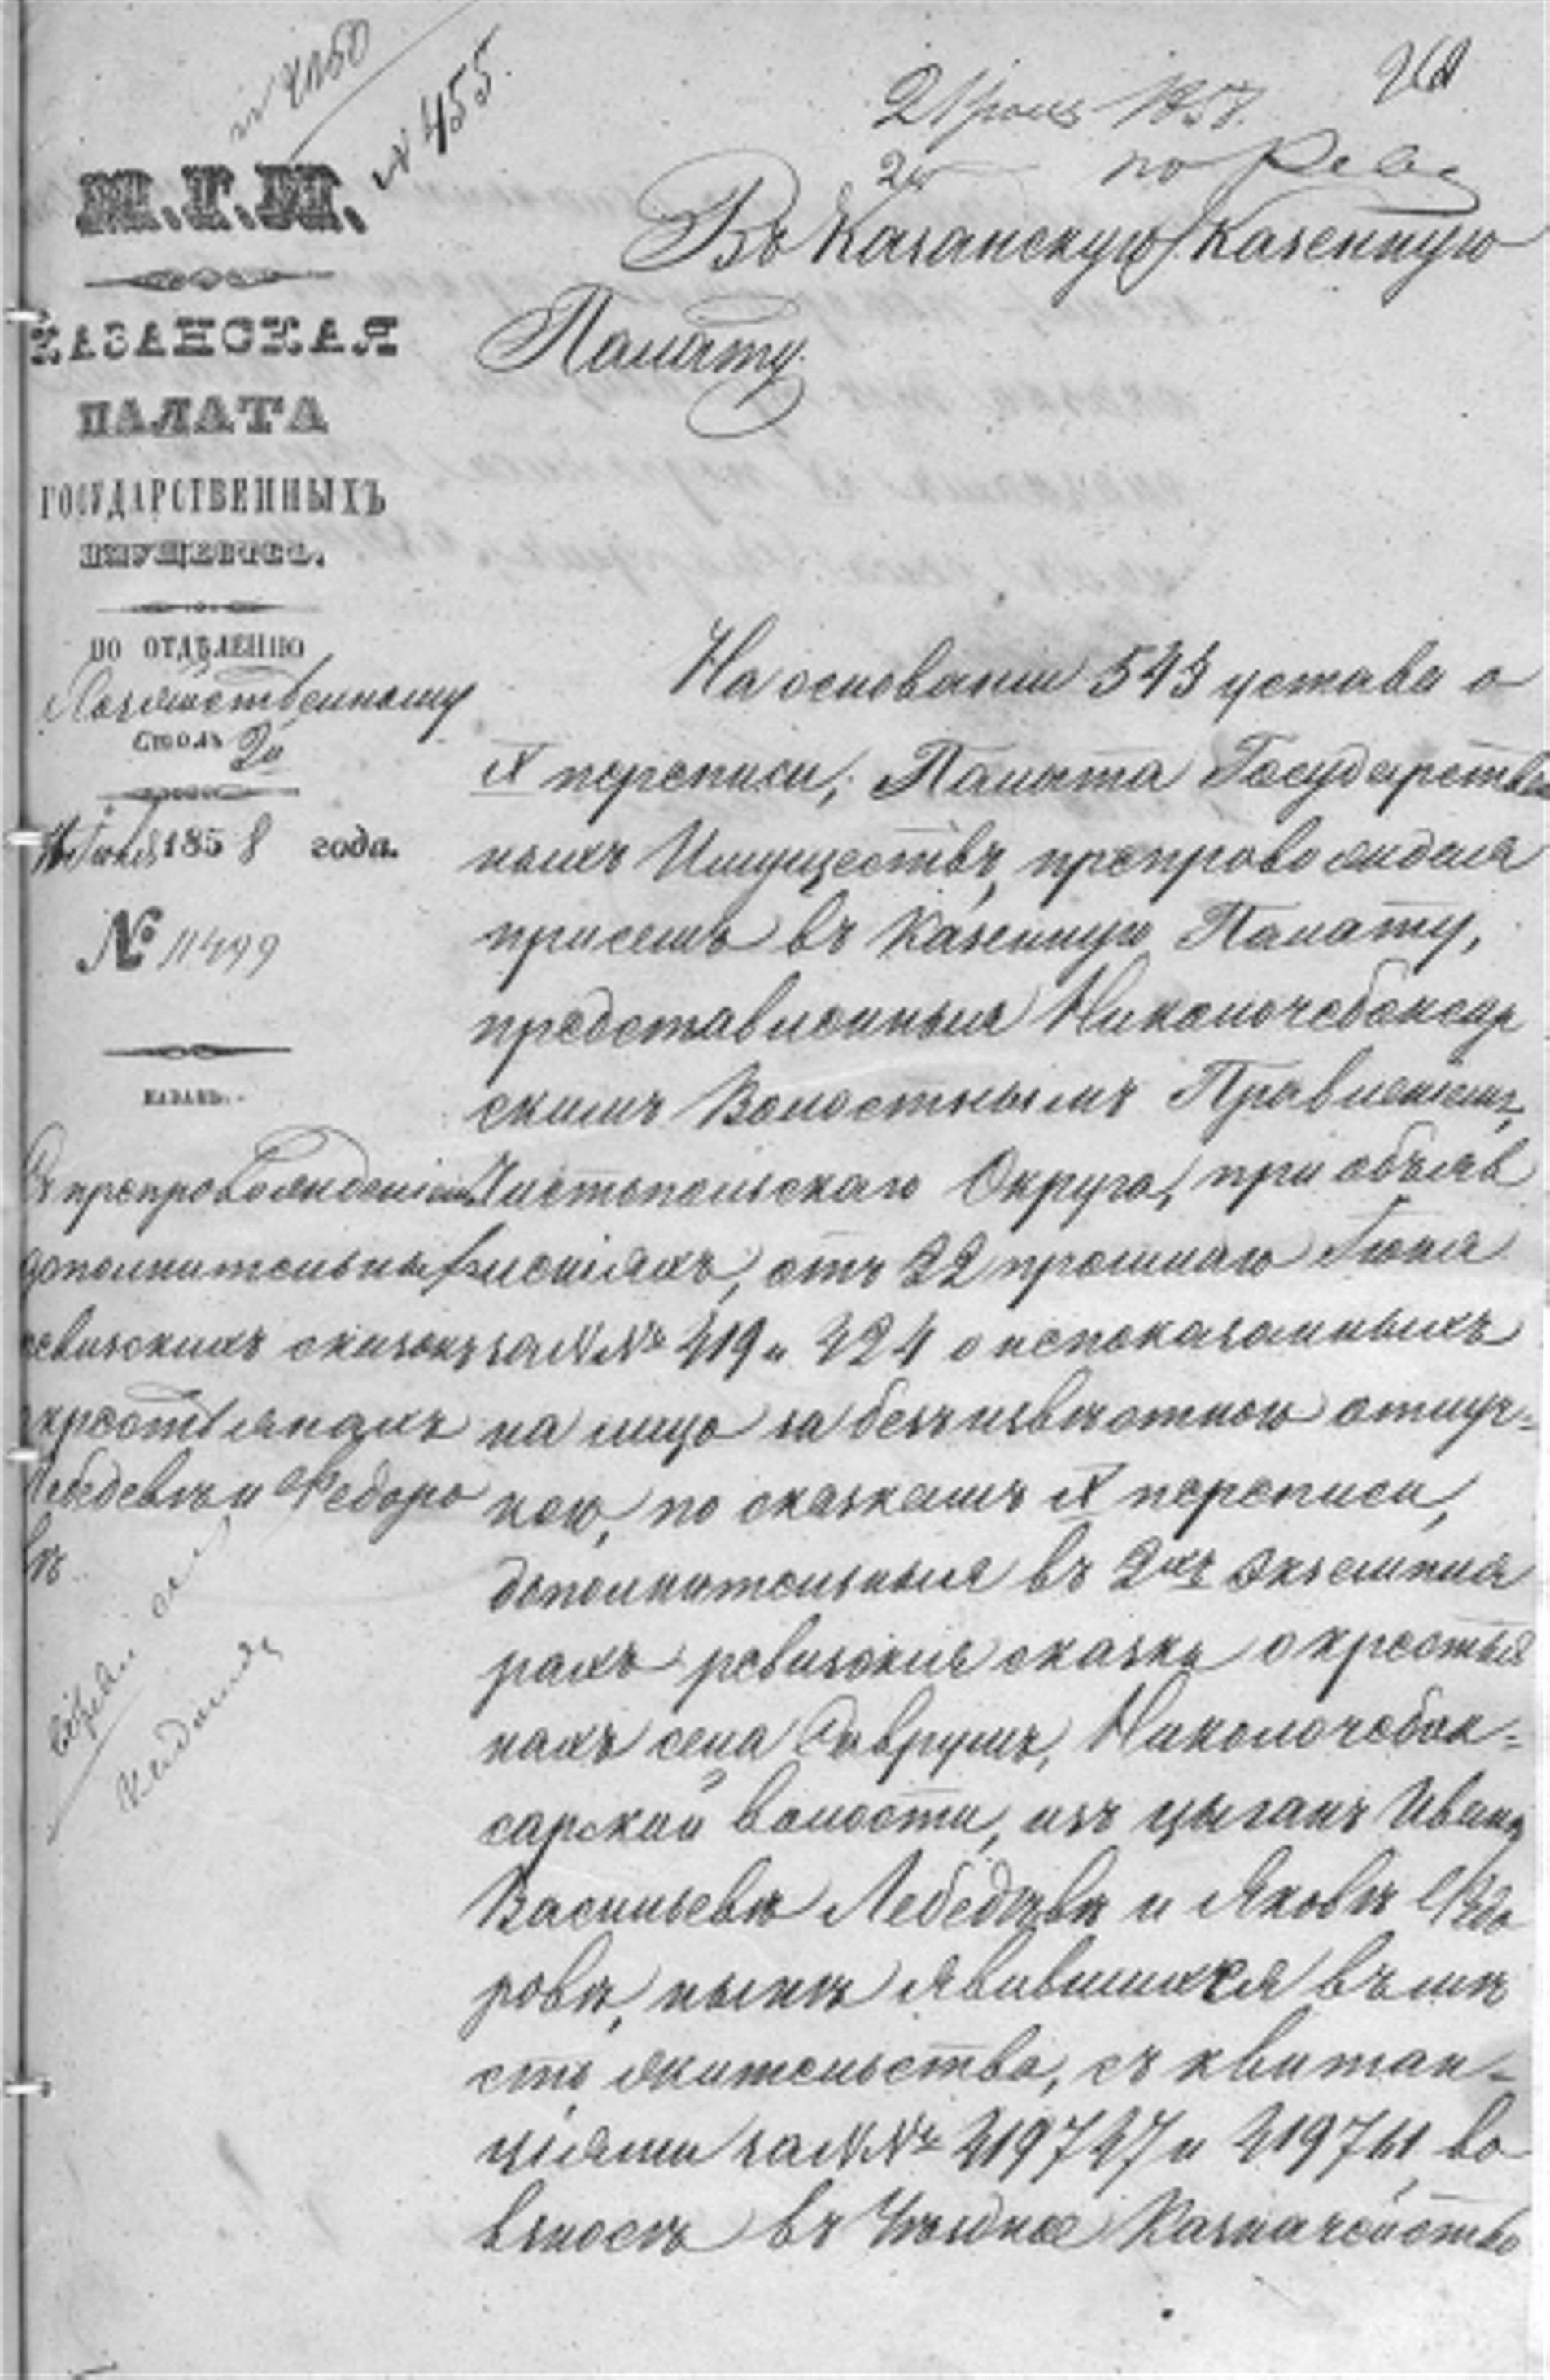 № 455.
М.Г.И.
КАЗАНСКАЯ
ПАЛАТА
ГОСУДАРСТВЕННЫХЪ
ИМУЩЕСТВЪ.
ПО ОТДѢЛЕНІЮ
Хозяйственному
Столъ 2й
1858 года.
№ 11499
КАЗАНЬ.
Съ препровожденіемъ
дополнительныхъ
ревизскихъ сказокъ
о крестьянахъ
Лебедевѣ и Ѳедоро
вѣ.
1858.
по Рев
Въ Казанскую Казенную
Палату.
На основаніи 543 устава о
IX переписи, Палата Государствен
ныхъ Имуществъ, препровождая
присемъ въ Казенную Палату,
представленныя Николочебоксар
скимъ Волостнымъ Правленіемъ,
Чистопольскаго Округа, при объяв
леніяхъ, отъ 22 прошлаго Іюня
за №№ 419 и 424 о непоказанныхъ
на лицо за безъизвѣстною отлуч-
кою, по сказкамъ IX переписи,
дополнительныя въ 2хъ экземпля
рахъ ревизскія сказки о крестья
нахъ села Саврушъ, Николочебок-
сарской волости, изъ цыганъ Иванѣ
Васильевѣ Лебедевѣ и Яковѣ Ѳедо
ровѣ, нынѣ явившихся въ мѣ
сто жительства, съ квитан-
ціями за №№ 419727 и 419761 во
взносѣ въ Уѣздное Казначейство